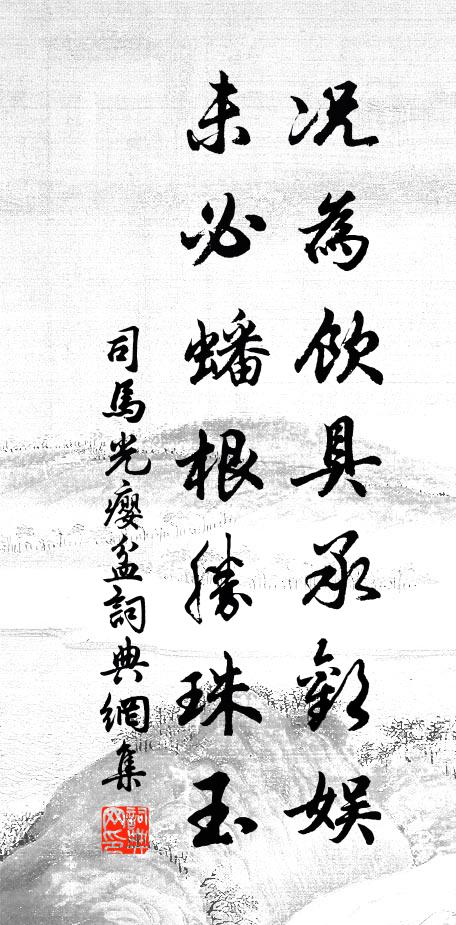 况為飲具承歡娛
未必蟠根勝珠玉
司馬光癭盆詞典網集